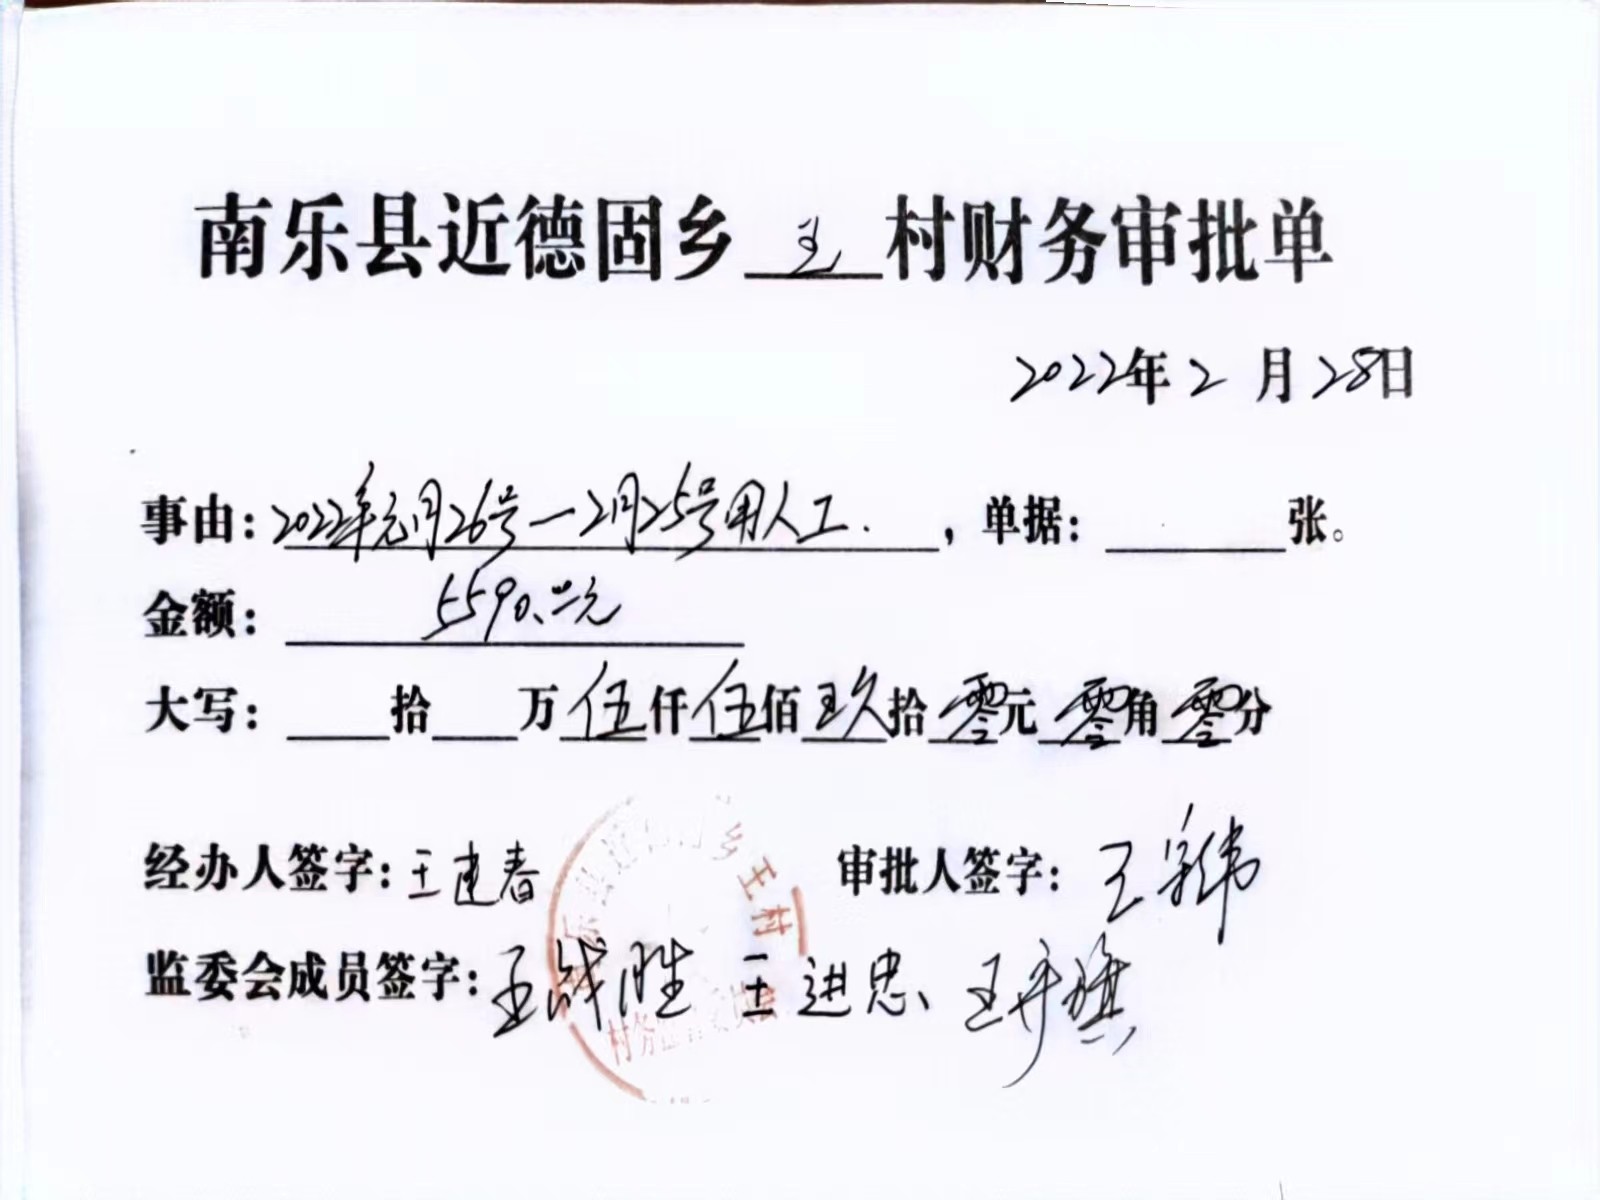 南乐县近德固乡王村财务审批单
2022年2月28日
事由：2022年元月26号一2月25号用人工.，单据：张。
金额：5590.00元
大写：拾万伍仟伍佰玖拾零元零角零分
经办人签字：王建春 审批人签字：王
监委会成员签字：王战胜 王进忠、王守旗
乡王村
村务监督委员会